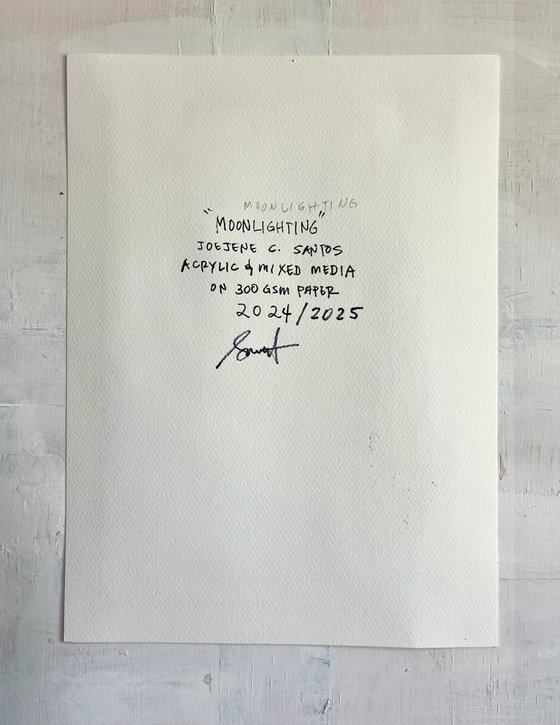 MOONLIGHTING
"MOONLIGHTING"
JOEJENE C. SANTOS
ACRYLIC & MIXED MEDIA
ON 300 GSM PAPER
2024/2025